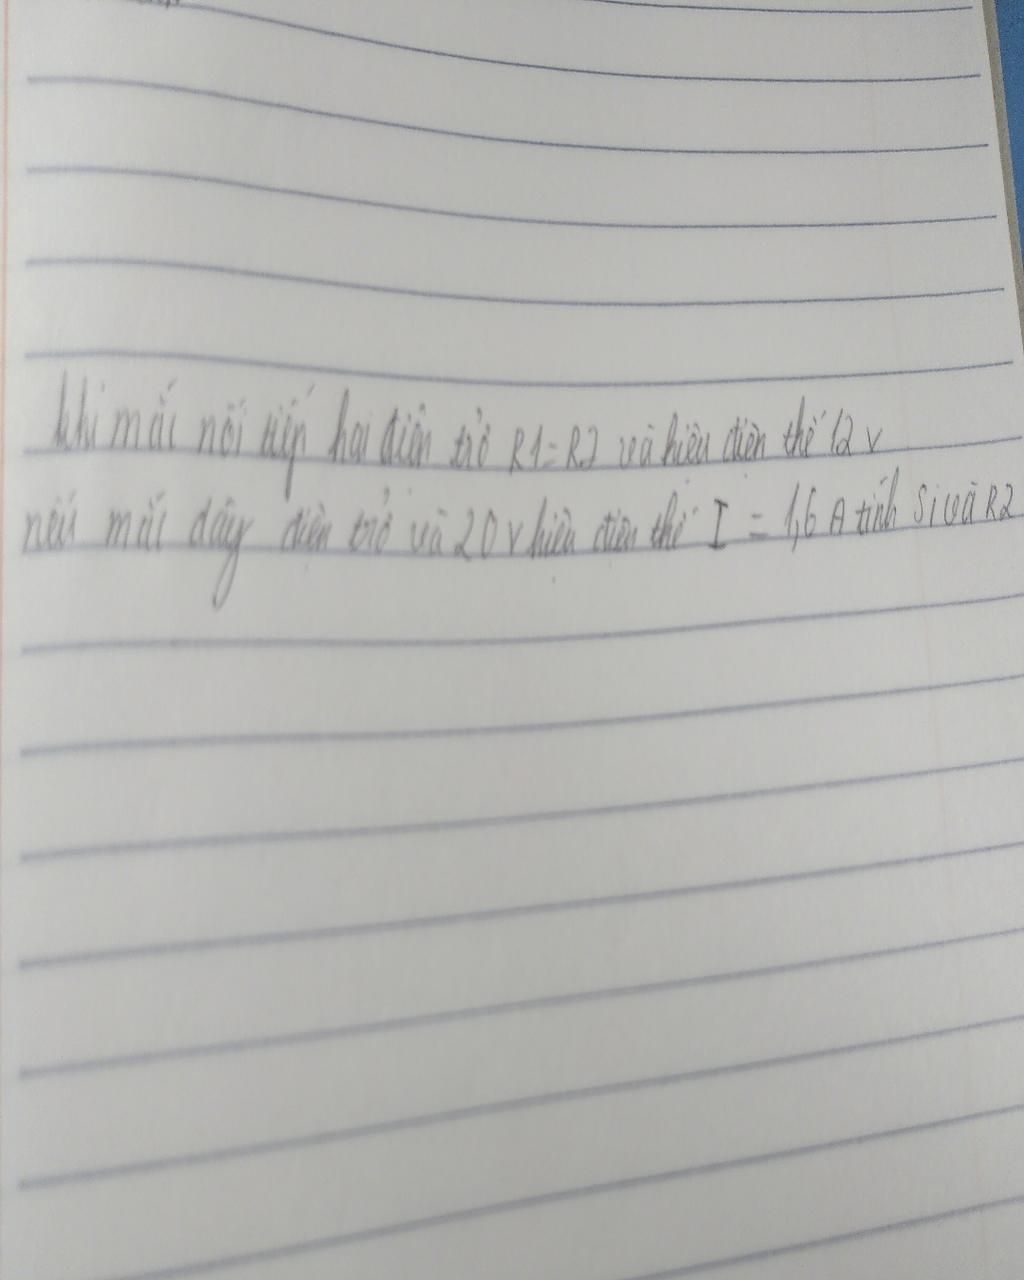 khi mắc nối tiếp hai điện trở R1=R2 và hiệu điện thế 12 v
nếu mắc dãy điện trở và 20 v hiệu điện thế I = 1,6 A tính Si và R2